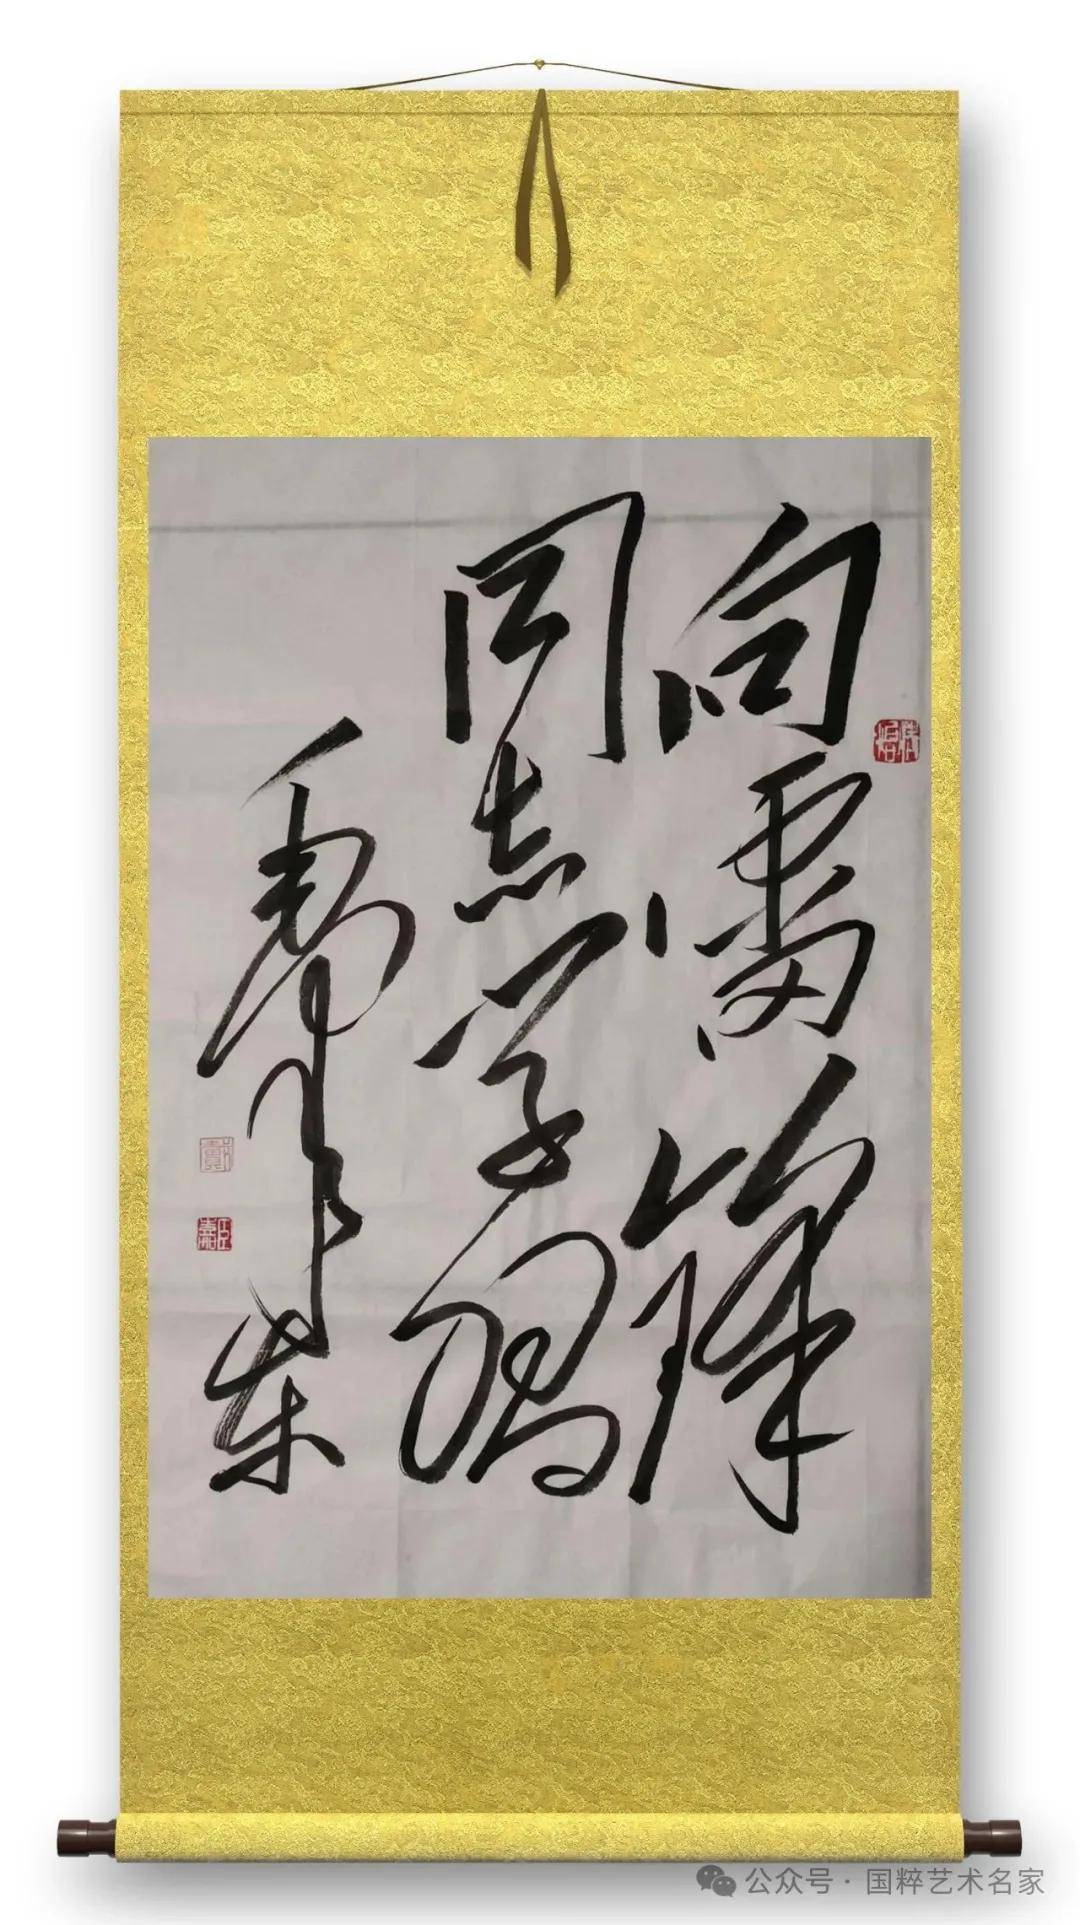 向雷锋
同志学习
毛泽东
公众号·国粹艺术名家